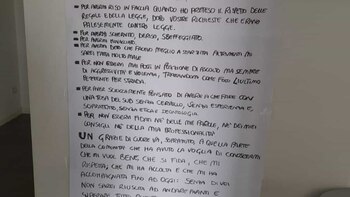 PER AVERMI RISO IN FACCIA QUANDO HO PRETESO IL RISPETTO DELLE
REGOLE E DELLA LEGGE, DOPO VOSTRE RICHIESTE CHE ERANO
PALESEMENTE CONTRO LEGGE.
PER AVERMI SCHERNITO, DERISO, SBEFFEGGIATO.
PER AVERMI
PER AVERMI DETTO CHE FACEVO MEGLIO A STAR ZITTA ALTRIMENTI MI
SAREI FATTA MOLTO MALE
PER NON ESSERVI MAI POSTI IN POSIZIONE DI ASCOLTO MA SEMPRE
DI AGGRESSIVITÀ E VIOLENZA, TRATTANDOMI COME FOSSI L'ULTIMO
PEZZENTE PER STRADA.
PER AVERE SCIOCCAMENTE PENSATO DI AVERE A CHE FARE CON
UNA DEL SUD SENZA CERVELLO, SENZA ESPERIENZA E
SOPRATTUTTO, SENZA ETICA E
PER NON ESSERVI FIDATI NÉ DELLE MIE PAROLE, NÉ DEI MIEI
CONSIGLI NÉ DELLA MIA PROFESSIONALITÀ
UN GRAZIE DI CUORE VA, SOPRATTUTTO, A QUELLA PARTE
DELLA COMUNITÀ CHE HA AVUTO LA VOGLIA DI CONOSCERMI
CHE MI VUOLE BENE, CHE SI FIDA, CHE MI
RISPETTA; CHE MI HA ACCOLTA E CHE MI HA
ACCOMPAGNATA FINO AD OGGI: SENZA DI VOI
NON SAREI RIUSCITA AD ANDARE AVANTI E